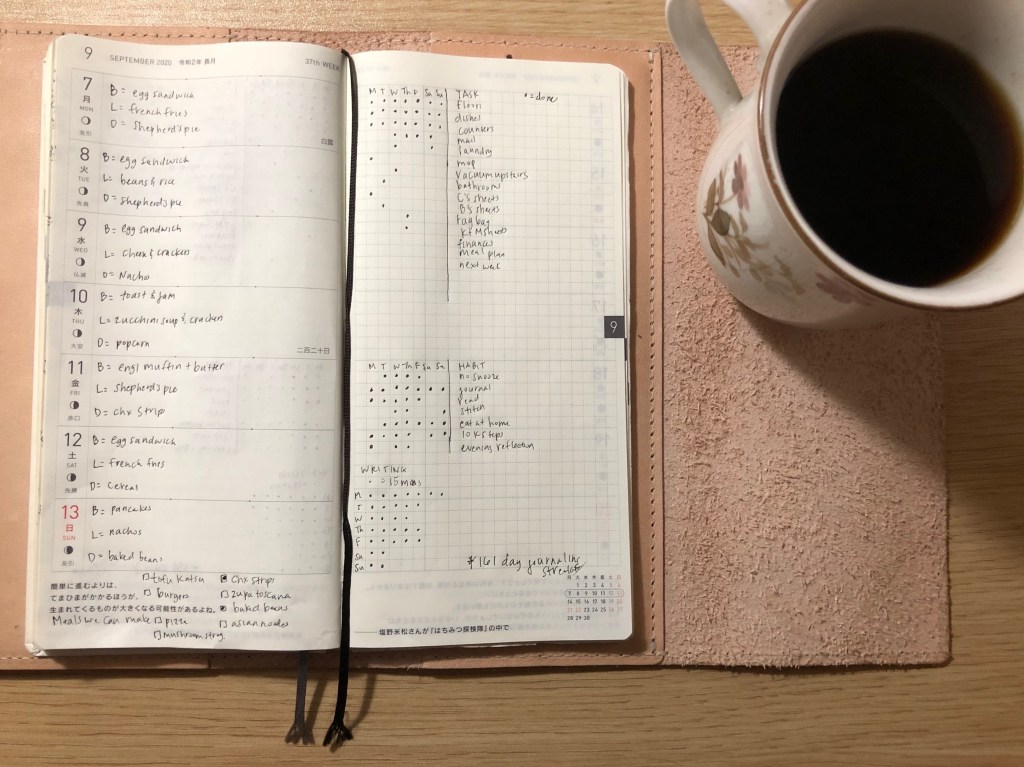 9 SEPTEMBER 2020 令和2年 長月 37th WEEK
7 月 MON 友引
B = egg sandwich
L = french fries
D = shepherd's pie
白露
8 火 TUE 先負
B = egg sandwich
L = beans & rice
D = shepherd's pie
9 水 WED 仏滅
B = egg sandwich
L = cheese & crackers
D = Nachos
10 木 THU 大安
B = toast & jam
L = zucchini soup & cracker
D = popcorn
二百二十日
11 金 FRI 赤口
B = engl muffin + butter
L = shepherd's pie
D = chx strip
12 土 SAT 先勝
B = egg sandwich
L = french fries
D = cereal
13 日 SUN 友引
B = pancakes
L = nachos
D = baked beans
簡単に進むよりは、
てまひまがかかるほうが、
生まれてくるものが大きくなる可能性があるよね。
Meals we can make
tofu katsu
burgers
pizza
mushroom strog.
chx strips
zupa toscana
baked beans
asian noodles
M T W Th F Sa Su TASK • = done
floors
dishes
counters
mail
laundry
mop
vacuum upstairs
bathrooms
C's sheets
B's sheets
rag bag
K & M sheets
finances
meal plan
next week
9
M T W Th F Sa Su HABIT
no snooze
journal
read
stitch
eat at home
10K steps
evening reflection
WRITING
• = 15 mins
M
T
W
Th
F
Sa
Su
* 161 day journaling
streak
月 火 水 木 金 土 日
1 2 3 4 5 6
7 8 9 10 11 12 13
14 15 16 17 18 19 20
21 22 23 24 25 26 27
28 29 30
塩野米松さんが『はちみつ探検隊』の中で